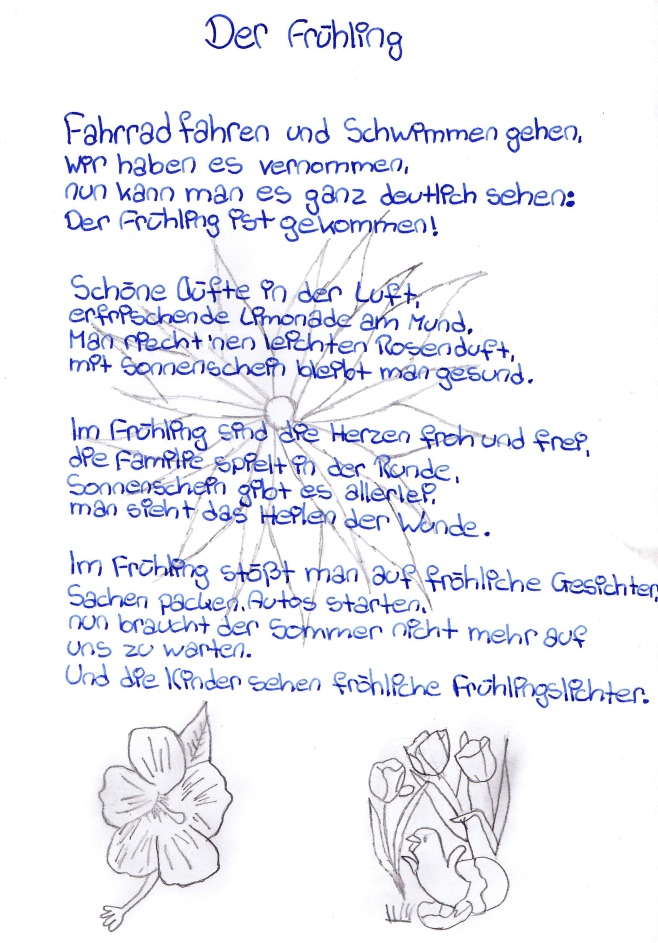 Der Frühling
Fahrrad fahren und Schwimmen gehen,
wir haben es vernommen,
nun kann man es ganz deutlich sehen:
Der Frühling ist gekommen!
Schöne Düfte in der Luft,
erfrischende Limonade am Mund.
Man riecht 'nen leichten Rosenduft,
mit Sonnenschein bleibt man gesund.
Im Frühling sind die Herzen froh und frei,
die Familie spielt in der Runde,
Sonnenschein gibt es allerlei,
man sieht das Heilen der Wunde.
Im Frühling stößt man auf fröhliche Gesichter,
Sachen packen, Autos starten,
nun braucht der Sommer nicht mehr auf
uns zu warten.
Und die Kinder sehen fröhliche Frühlingslichter.